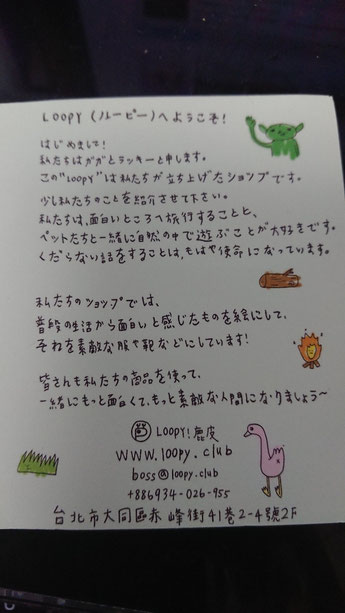 LOOPY (ルーピー)へようこそ!
はじめまして!
私たちはガガとラッキーと申します。
この"loopy"は私たちが立ち上げたショップです。
少し私たちのことを紹介させて下さい。
私たちは、面白いところへ旅行することと、
ペットたちと一緒に自然の中で遊ぶことが大好きです。
くだらない話をすることは、もはや使命になっています。
私たちのショップでは、
普段の生活から面白いと感じたものを絵にして、
それを素敵な服や靴などにしています!
皆さんも私たちの商品を使って、
一緒にもっと面白くて、もっと素敵な人間になりましょう〜
LOOPY!鹿皮
www.loopy.club
boss@loopy.club
+886934-026-955
台北市大同區赤峰街41巷2-4號2F